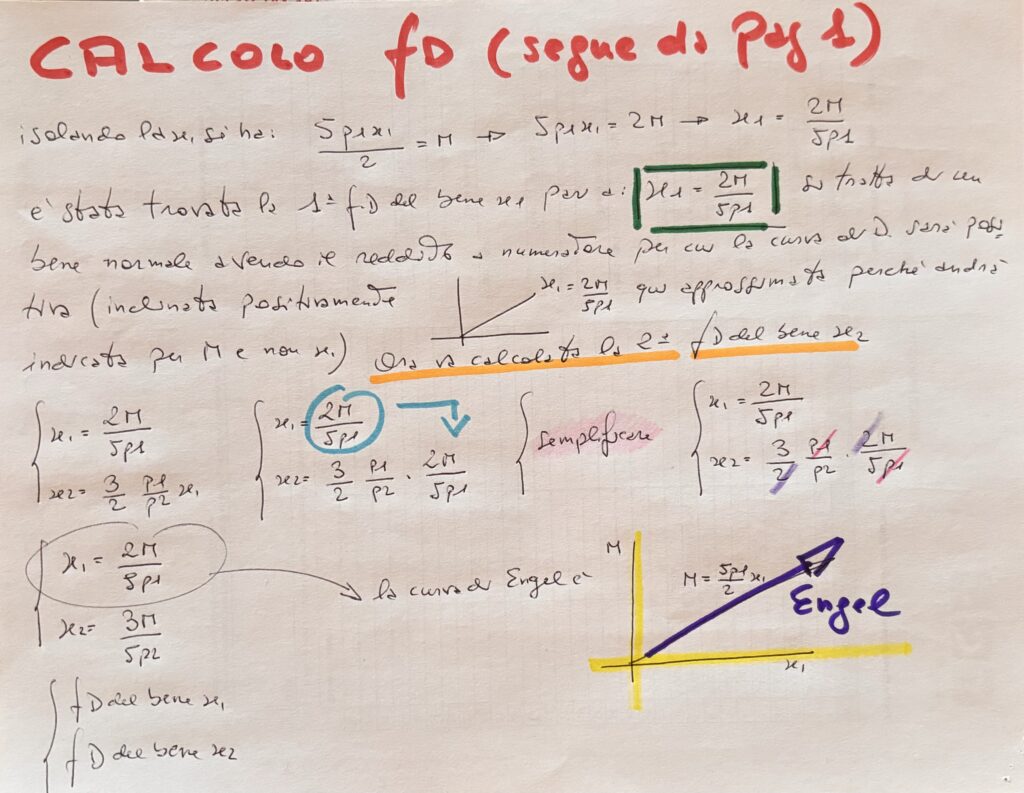 CALCOLO fD (segue da pag 1)
isolando la x₁ si ha: 5p1x₁/2 = M → 5p1x₁ = 2M → x1 = 2M/5p1
è stata trovata la 1ª f.D del bene x1 pari a: x1 = 2M/5p1 si tratta di un
bene normale avendo il reddito a numeratore per cui la curva di D. sarà posi
tiva (inclinata positivamente x₁ = 2M/5p1 qui approssimata perché andrà
indicata per M e non x₁) Ora va calcolata la 2ª fD del bene x2
x₁ = 2M/5p1
x2 = 3/2 p1/p2 x₁
x₁ = 2M/5p1
x2 = 3/2 p1/p2 · 2M/5p1
semplificare
x₁ = 2M/5p1
x2 = 3/2 p1/p2 · 2M/5p1
x₁ = 2M/5p1
x2 = 3M/5p2
la curva di Engel è
M
M = 5p1/2 x₁
Engel
x₁
fD del bene x₁
fD del bene x2